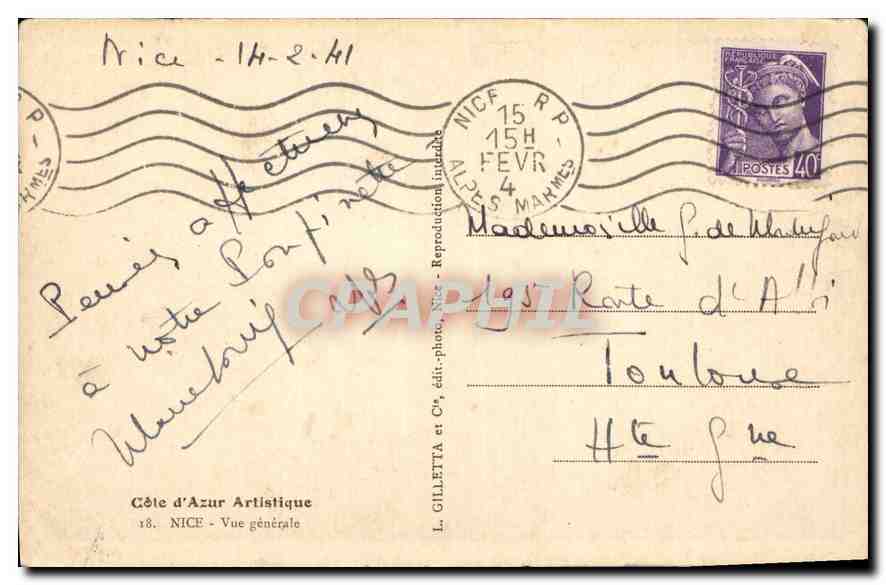 Nice - 14-2-41
NICE R P
15
15H
FEVR
4
ALPES MARMES
RÉPUBLIQUE
FRANÇAISE
POSTES 40c
R P -
MARMES
Pensées affectueuses
à notre
Mademoiselle G. de
195 Route d'Albi
Toulouse
Hte Gne
CPAPHIL
Côte d'Azur Artistique
18. NICE - Vue générale
L. GILLETTA et Cie, édit.-photo, Nice - Reproduction interdite